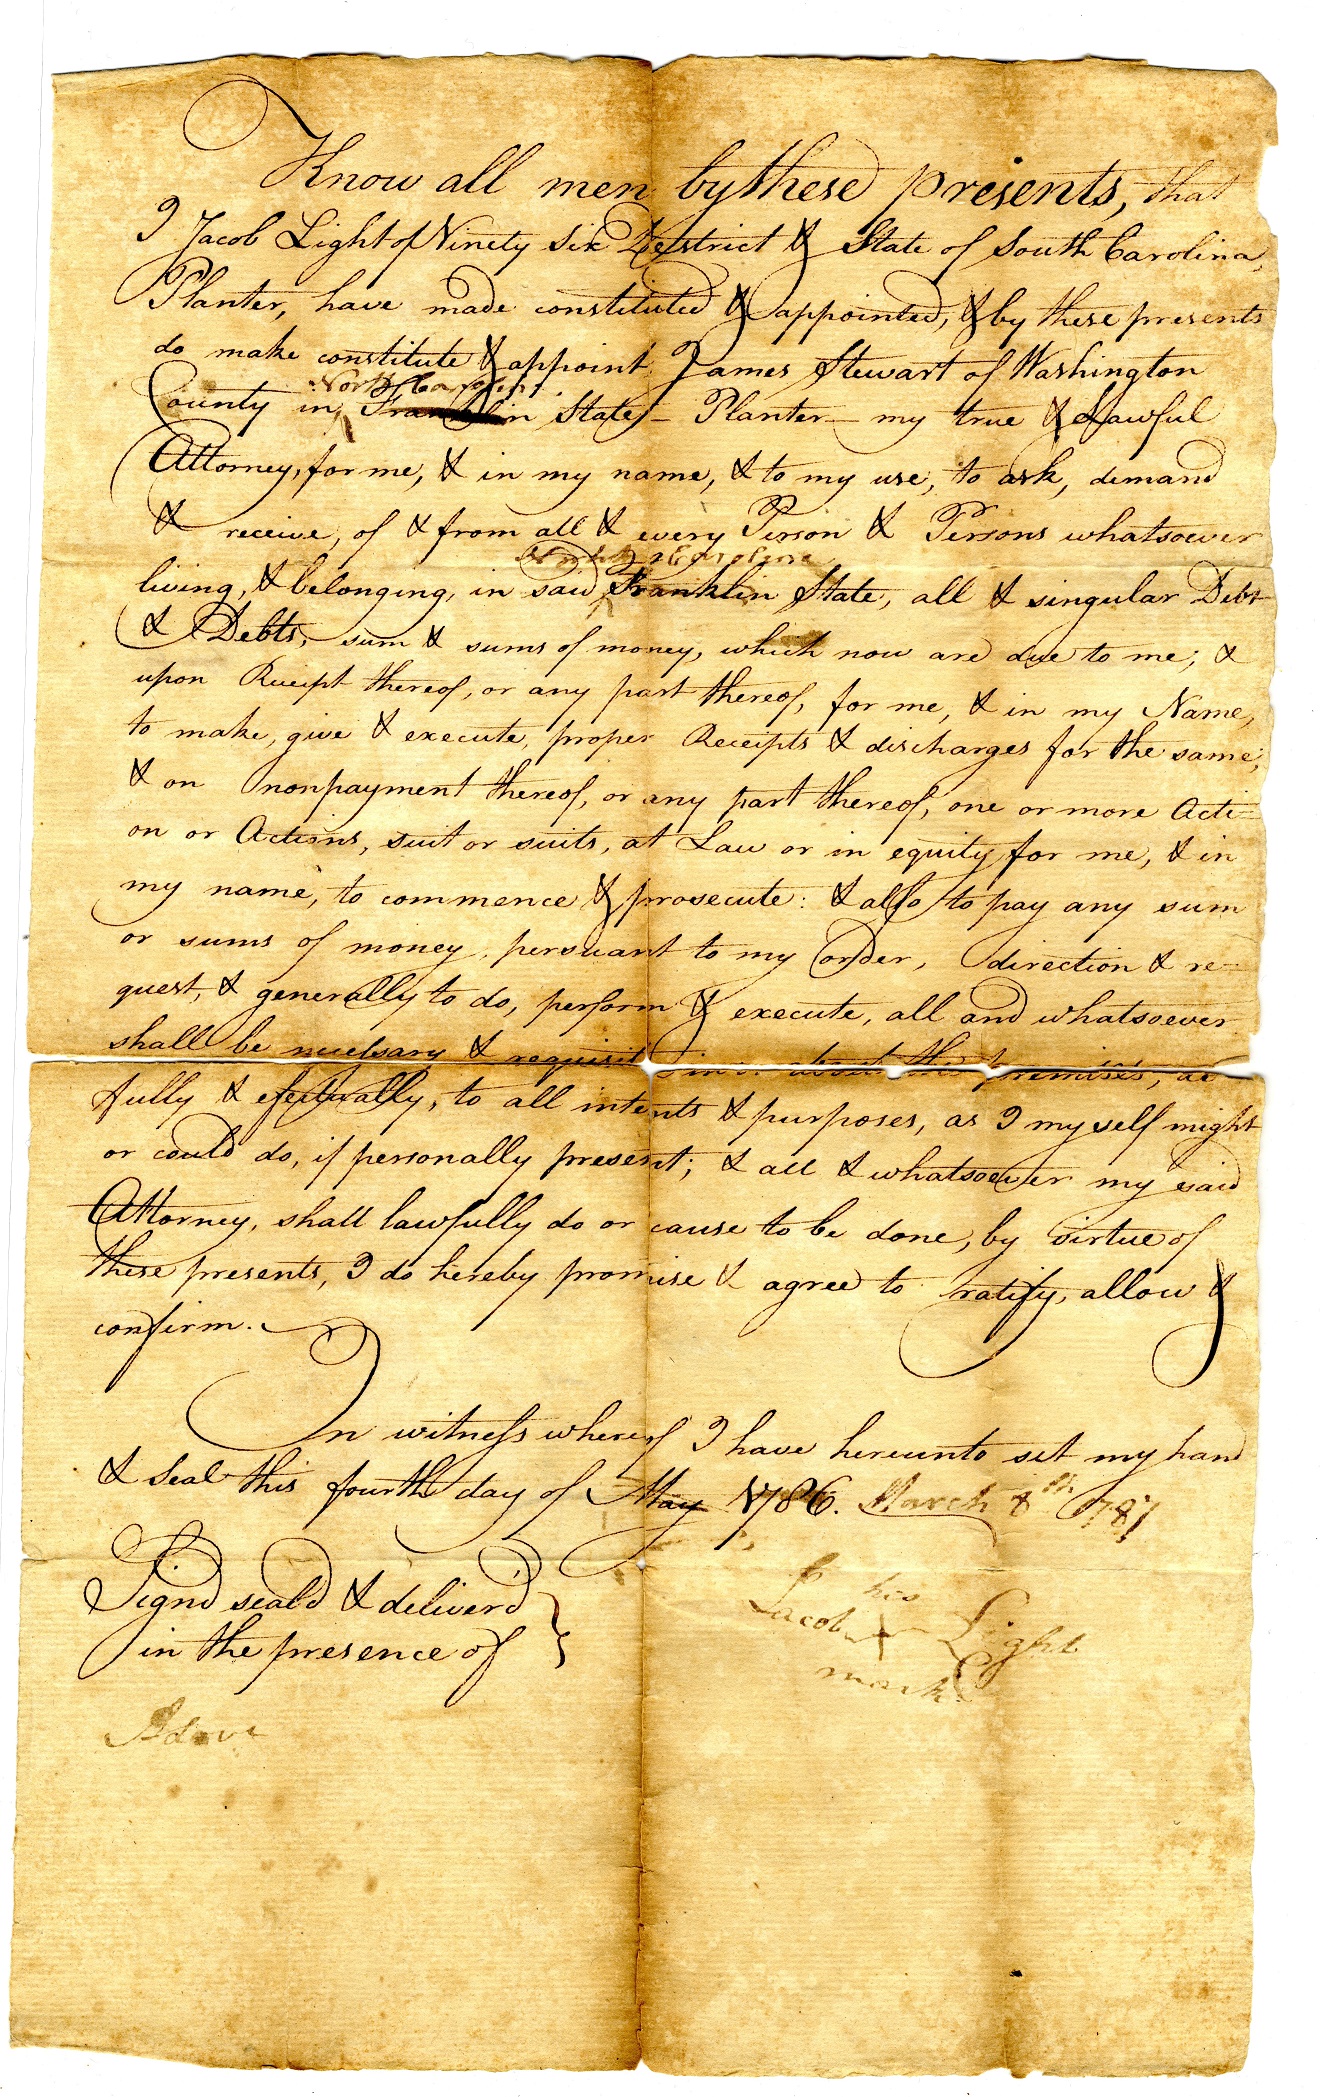 Know all men by these presents, that
I Jacob Light of Ninety Six District & State of South Carolina,
Planter, have made constituted & appointed, & by these presents
do make constitute & appoint James Stewart of Washington
North Carolina
County in Franklin State – Planter – my true & Lawful
Attorney, for me, & in my name, & to my use, to ask, demand
& receive, of & from all & every Person & Persons whatsoever
North Carolina
living, & belonging, in said Franklin State, all & singular Debt
& Debts, sum & sums of money, which now are due to me; &
upon Receipt thereof, or any part thereof, for me, & in my Name,
to make, give & execute, proper Receipts & discharges for the same;
& on nonpayment thereof, or any part thereof, one or more Acti=
on or Actions, suit or suits, at Law or in equity, for me, & in
my name, to commence & prosecute: & also to pay any sum
or sums of money, persuant to my order, direction & re=
quest, & generally to do, perform & execute, all and whatsoever
shall be necessary & requisit in about the premises, as
fully & efectually, to all intents & purposes, as I myself might
or could do, if personally present; & all & whatsoever my said
Attorney, shall lawfully do or cause to be done, by virtue of
these presents, I do hereby promise & agree to ratify, allow &
confirm.
In witness whereof I have hereunto set my hand
& Seal this fourth day of May 1786. March 8th 1787
Signd seald & deliverd
in the presence of
his
Jacob X Light
mark